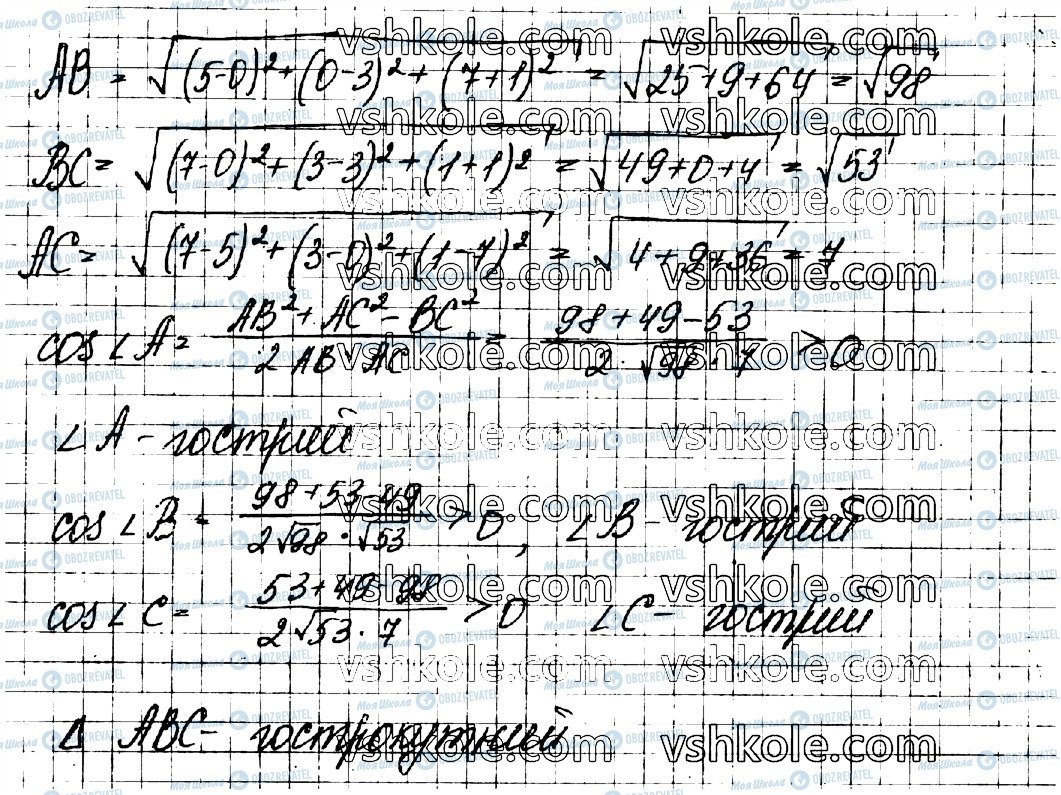 AB = √((5-0)²+(0-3)²+(7+1)²) = √(25+9+64) = √98
BC = √((7-0)²+(3-3)²+(1+1)²) = √(49+0+4) = √53
AC = √((7-5)²+(3-0)²+(1-7)²) = √(4+9+36) = 7
cos∠A = (AB²+AC²-BC²)/(2·AB·AC) = (98+49-53)/(2·√98·7) > 0
∠A - гострий
cos∠B = (98+53-49)/(2√98·√53) > 0, ∠B - гострий
cos∠C = (53+49-98)/(2√53·7) > 0 ∠C - гострий
Δ ABC - гострокутний
vshkole.com
Моя Школа OBOZREVATEL